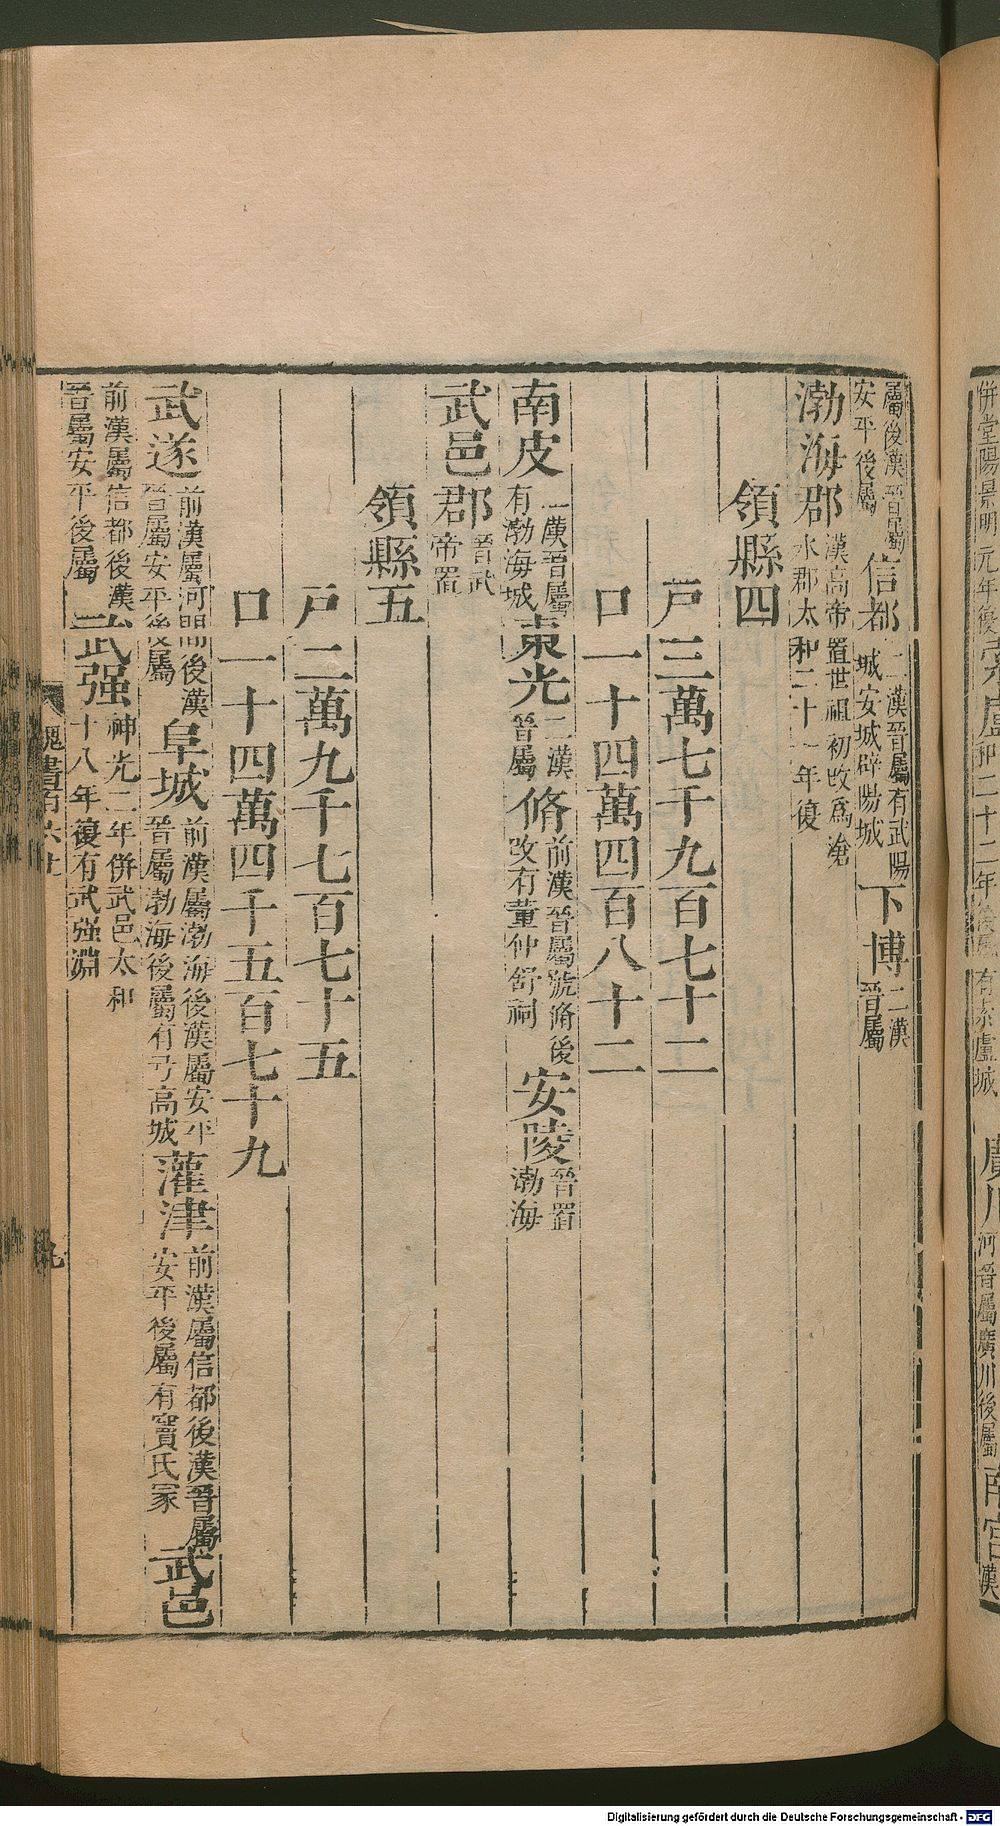 併堂陽景明元年復
和二十二年
有索盧城
廣川
河晉屬廣川後屬
南宮
漢
屬後漢晉屬
安平後屬
信都
二漢晉屬有武陽
城安城辟陽城
下博
二漢
晉屬
渤海郡
漢高帝置世祖初改爲滄
水郡太和二十一年復
領縣四
戸三萬七千九百七十二
口一十四萬四百八十二
南皮
二漢晉屬
有渤海城
東光
二漢
晉屬
脩
前漢晉屬號脩後
改有董仲舒祠
安陵
晉置
渤海
武邑郡
晉武
帝置
領縣五
戸二萬九千七百七十五
口一十四萬四千五百七十九
武遂
前漢屬河間後漢
晉屬安平後屬
阜城
前漢屬渤海後漢屬安平
晉屬渤海後屬有弓高城
灌津
前漢屬信都後漢晉屬
安平後屬有竇氏冢
武邑
前漢屬信都後漢
晉屬安平後屬
武强
神光二年併武邑太和
十八年復有武强淵
魏書百六上
九
Digitalisierung gefördert durch die Deutsche Forschungsgemeinschaft - DFG